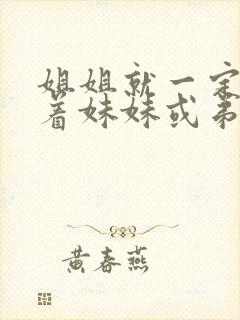 姐姐就一定
着妹妹或弟
黄春燕